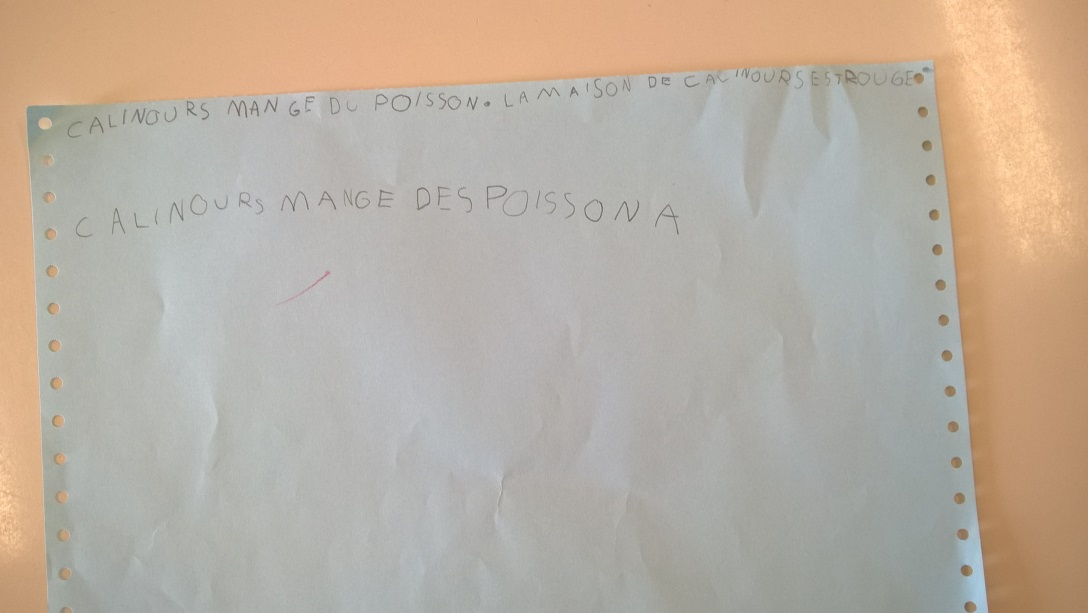 CALINOURS MANGE DU POISSON. LA MAISON DE CALINOURS EST ROUGE.
CALINOURS MANGE DES POISSON A